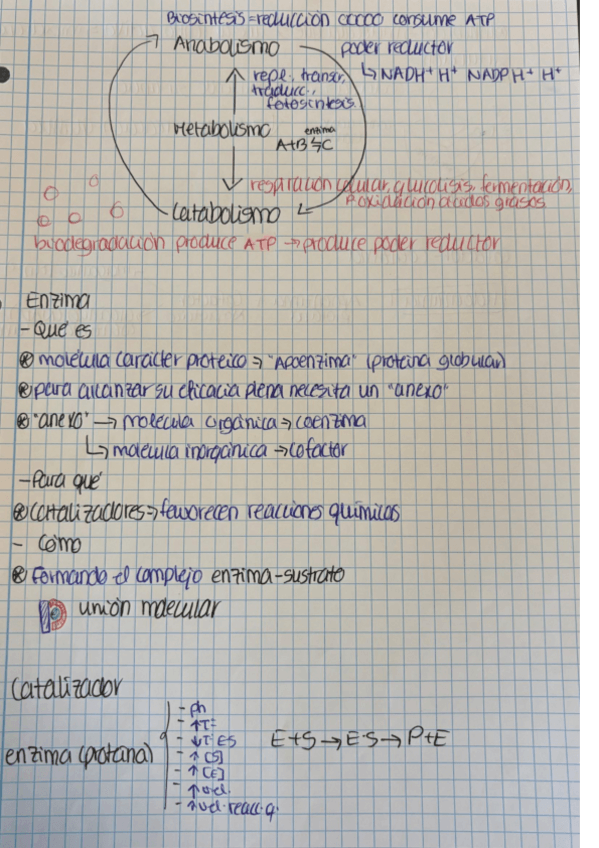 Biosíntesis=reducción ooooo consume ATP
Anabolismo poder reductor
↳NADH⁺ H⁺ NADPH⁺ H⁺
repl., transcr,
traducc.,
fotosíntesis.
Metabolismo enzima
A+B⇆C
respiración celular, glucólisis, fermentación,
β oxidación ácidos grasos
Catabolismo
biodegradación produce ATP → produce poder reductor
Enzima
- Qué es
⊛ molécula carácter proteico ⇒ "Apoenzima" (proteína globular)
⊛ para alcanzar su eficacia plena necesita un "anexo"
⊛ "anexo" → molécula orgánica ⇒ coenzima
↳ molécula inorgánica → cofactor
- Para qué
⊛ Catalizadores ⇒ favorecen reacciones químicas
- Cómo
⊛ Formando el complejo enzima-sustrato
unión molecular
Catalizador
enzima (proteína)
- ph
- ↑Tª
- ↓T. ES
- ↑[S]
- ↑[E]
- ↑vel.
- ↑vel. reacc. q.
E+S → E·S → P+E